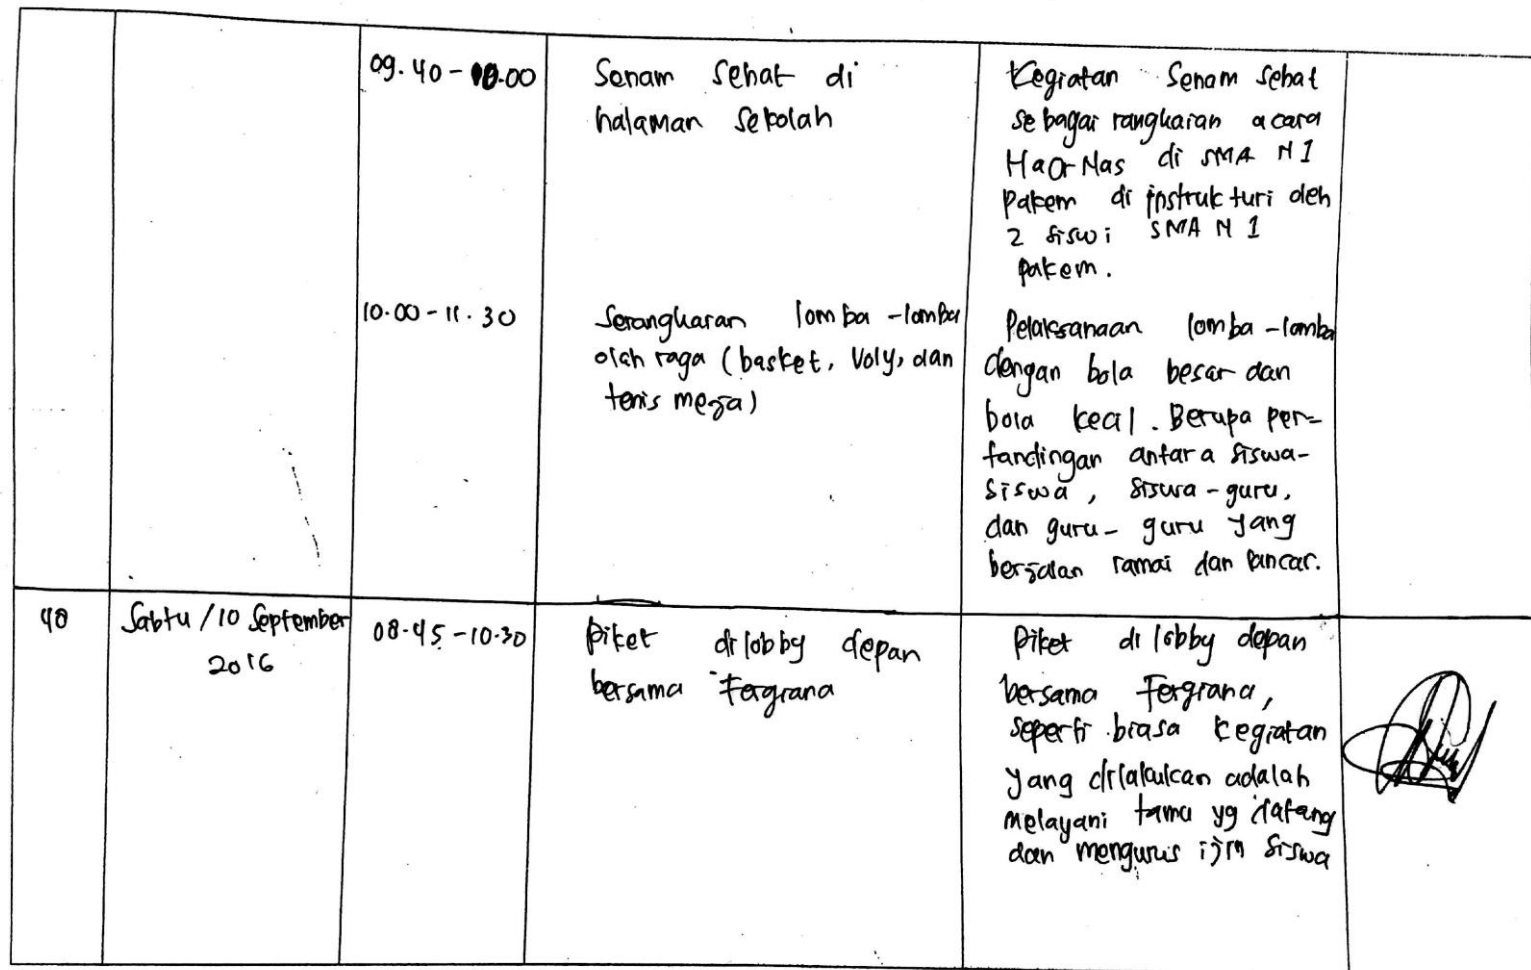 09.40 - 10.00
Senam Sehat di
halaman Sekolah
Kegiatan Senam Sehat
sebagai rangkaian acara
HaOrNas di SMA N 1
Pakem di instrukturi oleh
2 siswi SMA N 1
pakem.
10.00 - 11.30
Serangkaian lomba-lomba
olah raga (basket, Voly, dan
tenis meja)
Pelaksanaan lomba-lomba
dengan bola besar dan
bola kecil. Berupa per-
tandingan antara siswa-
siswa, siswa-guru,
dan guru-guru yang
berjalan ramai dan lancar.
40
Sabtu / 10 September
2016
08.45 - 10.30
Piket di lobby depan
bersama Fergiana
Piket di lobby depan
bersama Fergiana,
seperti biasa kegiatan
yang dilakukan adalah
melayani tamu yg datang
dan mengurus ijin siswa